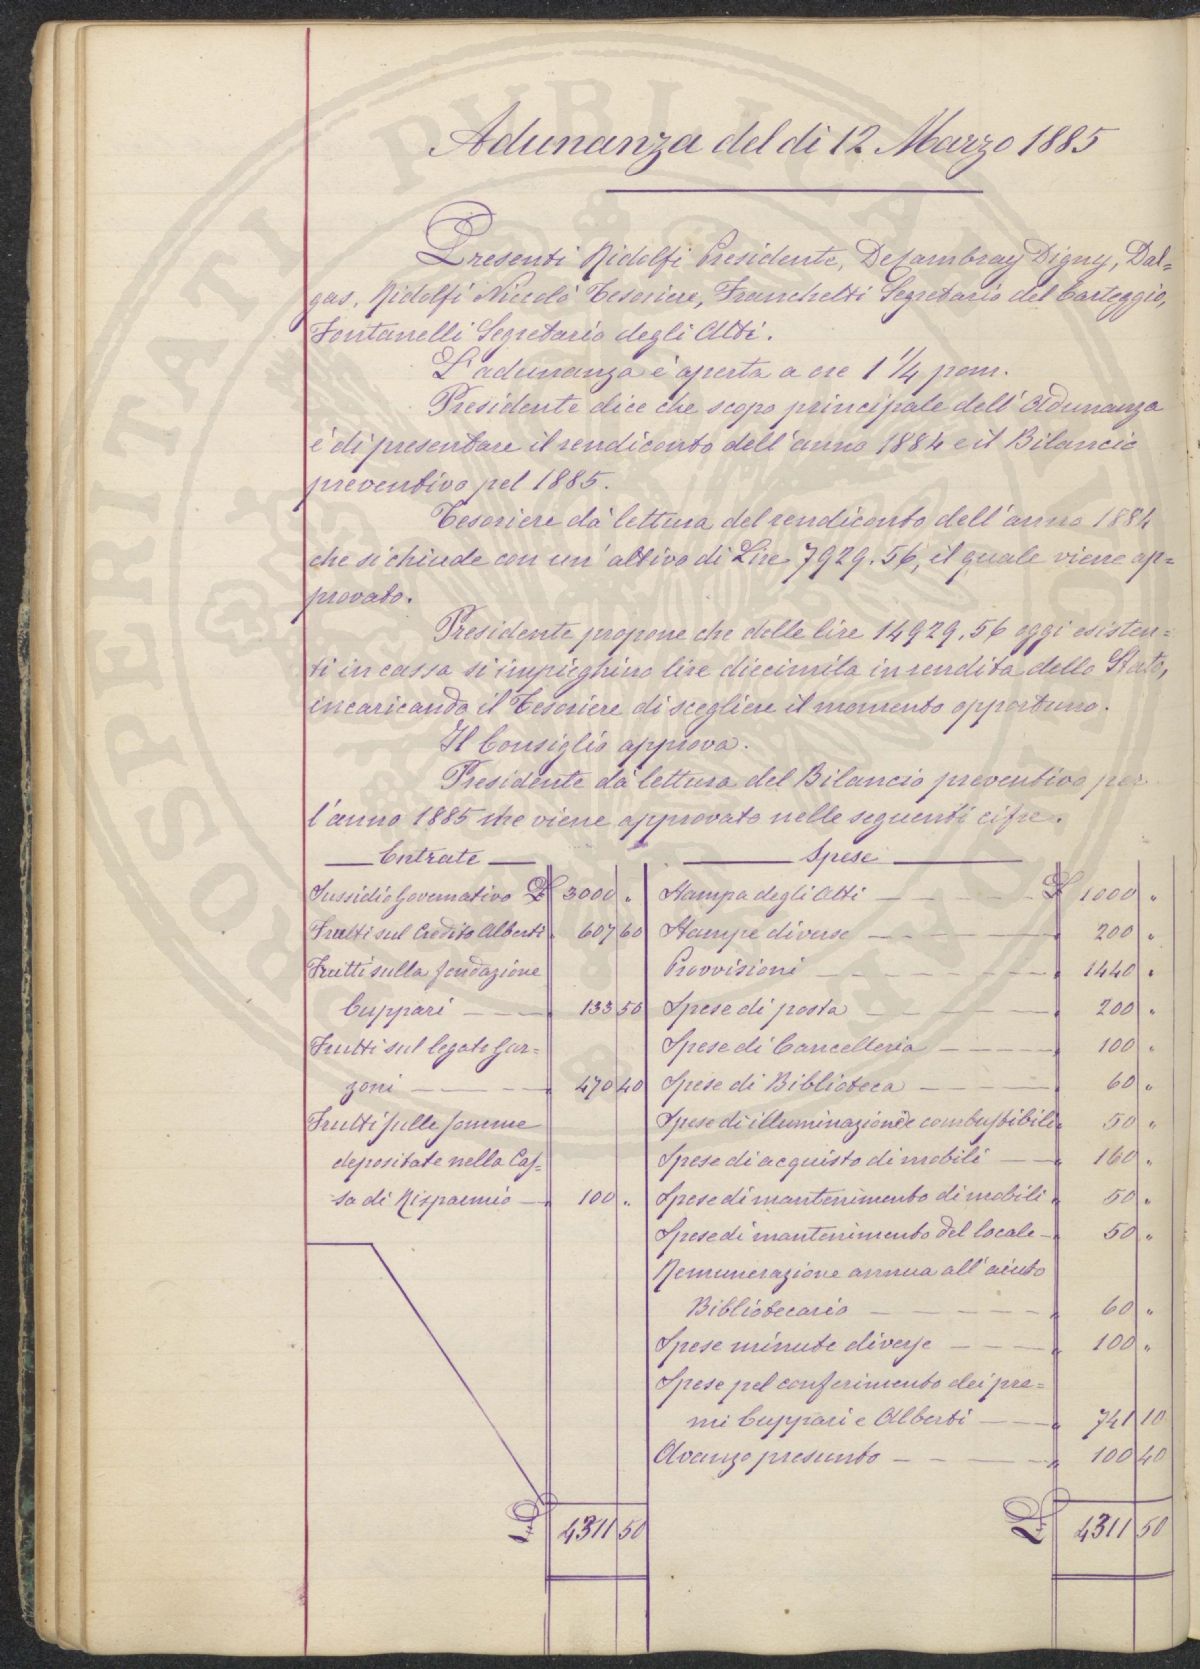 Adunanza del dì 12 Marzo 1885
Presenti Ridolfi Presidente, DeCambray Digny, Dal=
gas, Ridolfi Niccolò Tesoriere, Franchetti Segretario del Carteggio,
Fontanelli Segretario degli Atti.
L'adunanza è aperta a ore 1 1/4 pom.
Presidente dice che scopo principale dell'Adunanza
è di presentare il rendiconto dell'anno 1884 e il Bilancio
preventivo pel 1885.
Tesoriere dà lettura del rendiconto dell'anno 1884
che si chiude con un'attivo di Lire 7929.56, il quale viene ap=
provato.
Presidente propone che delle lire 14929.56 oggi esisten=
ti in cassa si impieghino lire diecimila in rendita dello Stato,
incaricando il Tesoriere di scegliere il momento opportuno.
Il Consiglio approva.
Presidente dà lettura del Bilancio preventivo per
l'anno 1885 che viene approvato nelle seguenti cifre.
Entrate
Sussidio Governativo £ 3000 "
Frutti sul Credito Alberti " 607 60
Frutti sulla fondazione
Cuppari " 133 50
Frutti sul legato Gar=
zoni " 470 40
Frutti sulle somme
depositate nella Cas=
sa di Risparmio " 100 "
£ 4311 50
Spese
Stampa degli Atti £ 1000 "
Stampe diverse " 200 "
Provvisioni " 1440 "
Spese di posta " 200 "
Spese di Cancelleria " 100 "
Spese di Biblioteca " 60 "
Spese di illuminazione e combustibili " 50 "
Spese di acquisto di mobili " 160 "
Spese di mantenimento di mobili " 50 "
Spese di mantenimento del locale " 50 "
Remunerazione annua all'aiuto
Bibliotecario " 60 "
Spese minute diverse " 100 "
Spese pel conferimento dei pre=
mi Cuppari e Alberti " 741 10
Avanzo presunto " 100 40
£ 4311 50